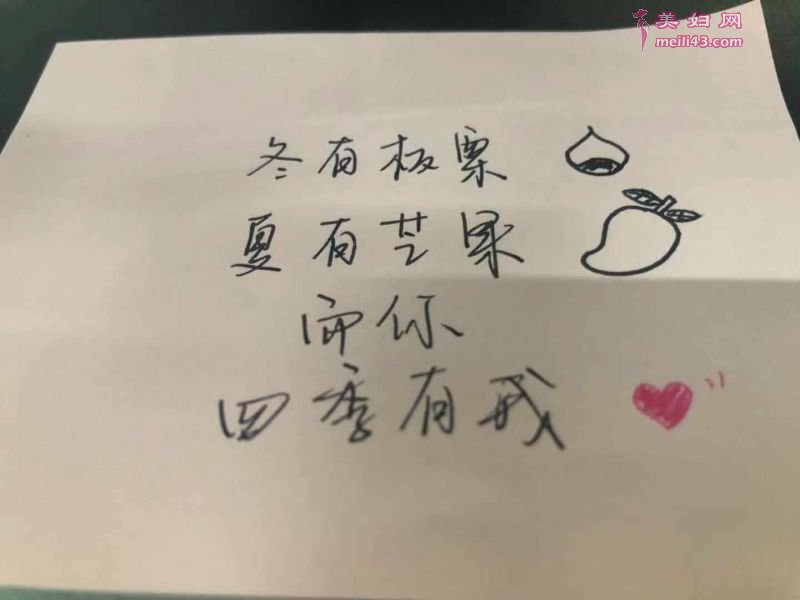 美妇网
meili43.com
冬有板栗
夏有芒果
而你
四季有我